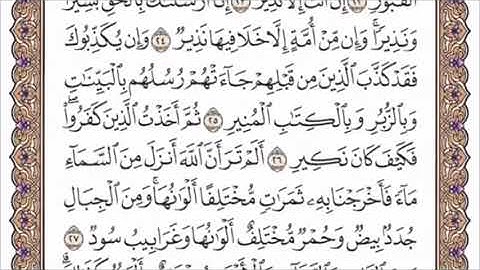 ٱلۡقُبُورِ ٢٢ إِنۡ أَنتَ إِلَّا نَذِيرٌ ٢٣ إِنَّآ أَرۡسَلۡنَٰكَ بِٱلۡحَقِّ بَشِيرٗا
وَنَذِيرٗاۚ وَإِن مِّنۡ أُمَّةٍ إِلَّا خَلَا فِيهَا نَذِيرٞ ٢٤ وَإِن يُكَذِّبُوكَ
فَقَدۡ كَذَّبَ ٱلَّذِينَ مِن قَبۡلِهِمۡ جَآءَتۡهُمۡ رُسُلُهُم بِٱلۡبَيِّنَٰتِ
وَبِٱلزُّبُرِ وَبِٱلۡكِتَٰبِ ٱلۡمُنِيرِ ٢٥ ثُمَّ أَخَذۡتُ ٱلَّذِينَ كَفَرُواْۖ
فَكَيۡفَ كَانَ نَكِيرِ ٢٦ أَلَمۡ تَرَ أَنَّ ٱللَّهَ أَنزَلَ مِنَ ٱلسَّمَآءِ
مَآءٗ فَأَخۡرَجۡنَا بِهِۦ ثَمَرَٰتٖ مُّخۡتَلِفًا أَلۡوَٰنُهَاۚ وَمِنَ ٱلۡجِبَالِ
جُدَدُۢ بِيضٞ وَحُمۡرٞ مُّخۡتَلِفٌ أَلۡوَٰنُهَا وَغَرَابِيبُ سُودٞ ٢٧